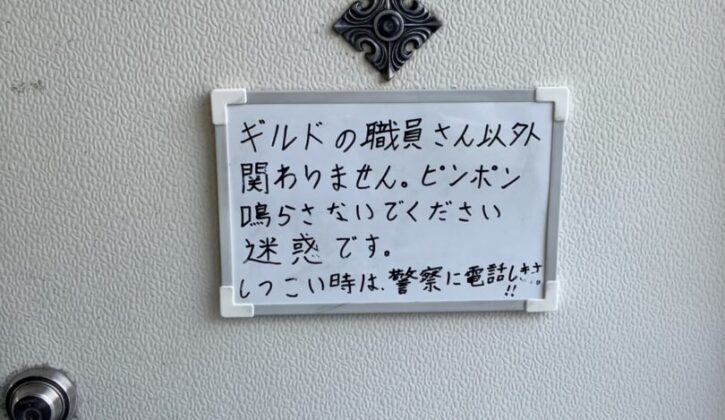 ギルドの職員さん以外
関わりません。ピンポン
鳴らさないでください
迷惑です。
しつこい時は、警察に電話します。!!